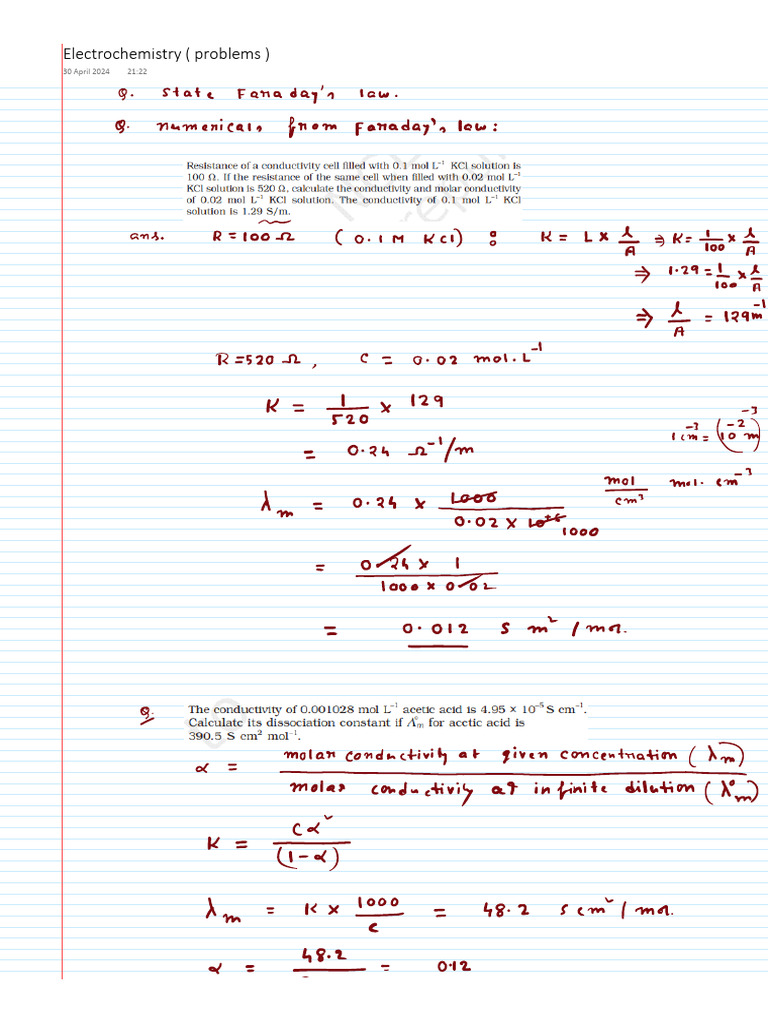 Electrochemistry ( problems )
30 April 2024 21:22
Q. State Faraday's law.
Q. numericals from Faraday's law:
Resistance of a conductivity cell filled with 0.1 mol L⁻¹ KCl solution is
100 Ω. If the resistance of the same cell when filled with 0.02 mol L⁻¹
KCl solution is 520 Ω, calculate the conductivity and molar conductivity
of 0.02 mol L⁻¹ KCl solution. The conductivity of 0.1 mol L⁻¹ KCl
solution is 1.29 S/m.
ans. R = 100 Ω (0.1 M KCl) : K = L × l/A ⇒ K = 1/100 × l/A
⇒ 1.29 = 1/100 × l/A
⇒ l/A = 129 m⁻¹
R = 520 Ω, C = 0.02 mol. L⁻¹
K = 1/520 × 129
1 cm⁻³ = (10⁻² m)⁻³
= 0.24 Ω⁻¹/m
mol/cm³ mol. cm⁻³
λm = 0.24 × 1000/0.02 × 1000
= 0.24 × 1/1000 × 0.02
= 0.012 S m²/mol.
Q. The conductivity of 0.001028 mol L⁻¹ acetic acid is 4.95 × 10⁻⁵ S cm⁻¹.
Calculate its dissociation constant if Λ°m for acetic acid is
390.5 S cm² mol⁻¹.
α = molar conductivity at given concentration (λm)
molar conductiviy at infinite dilution (λ°m)
K = Cα²/(1-α)
λm = K × 1000/c = 48.2 S cm²/mol.
α = 48.2 = 0.12